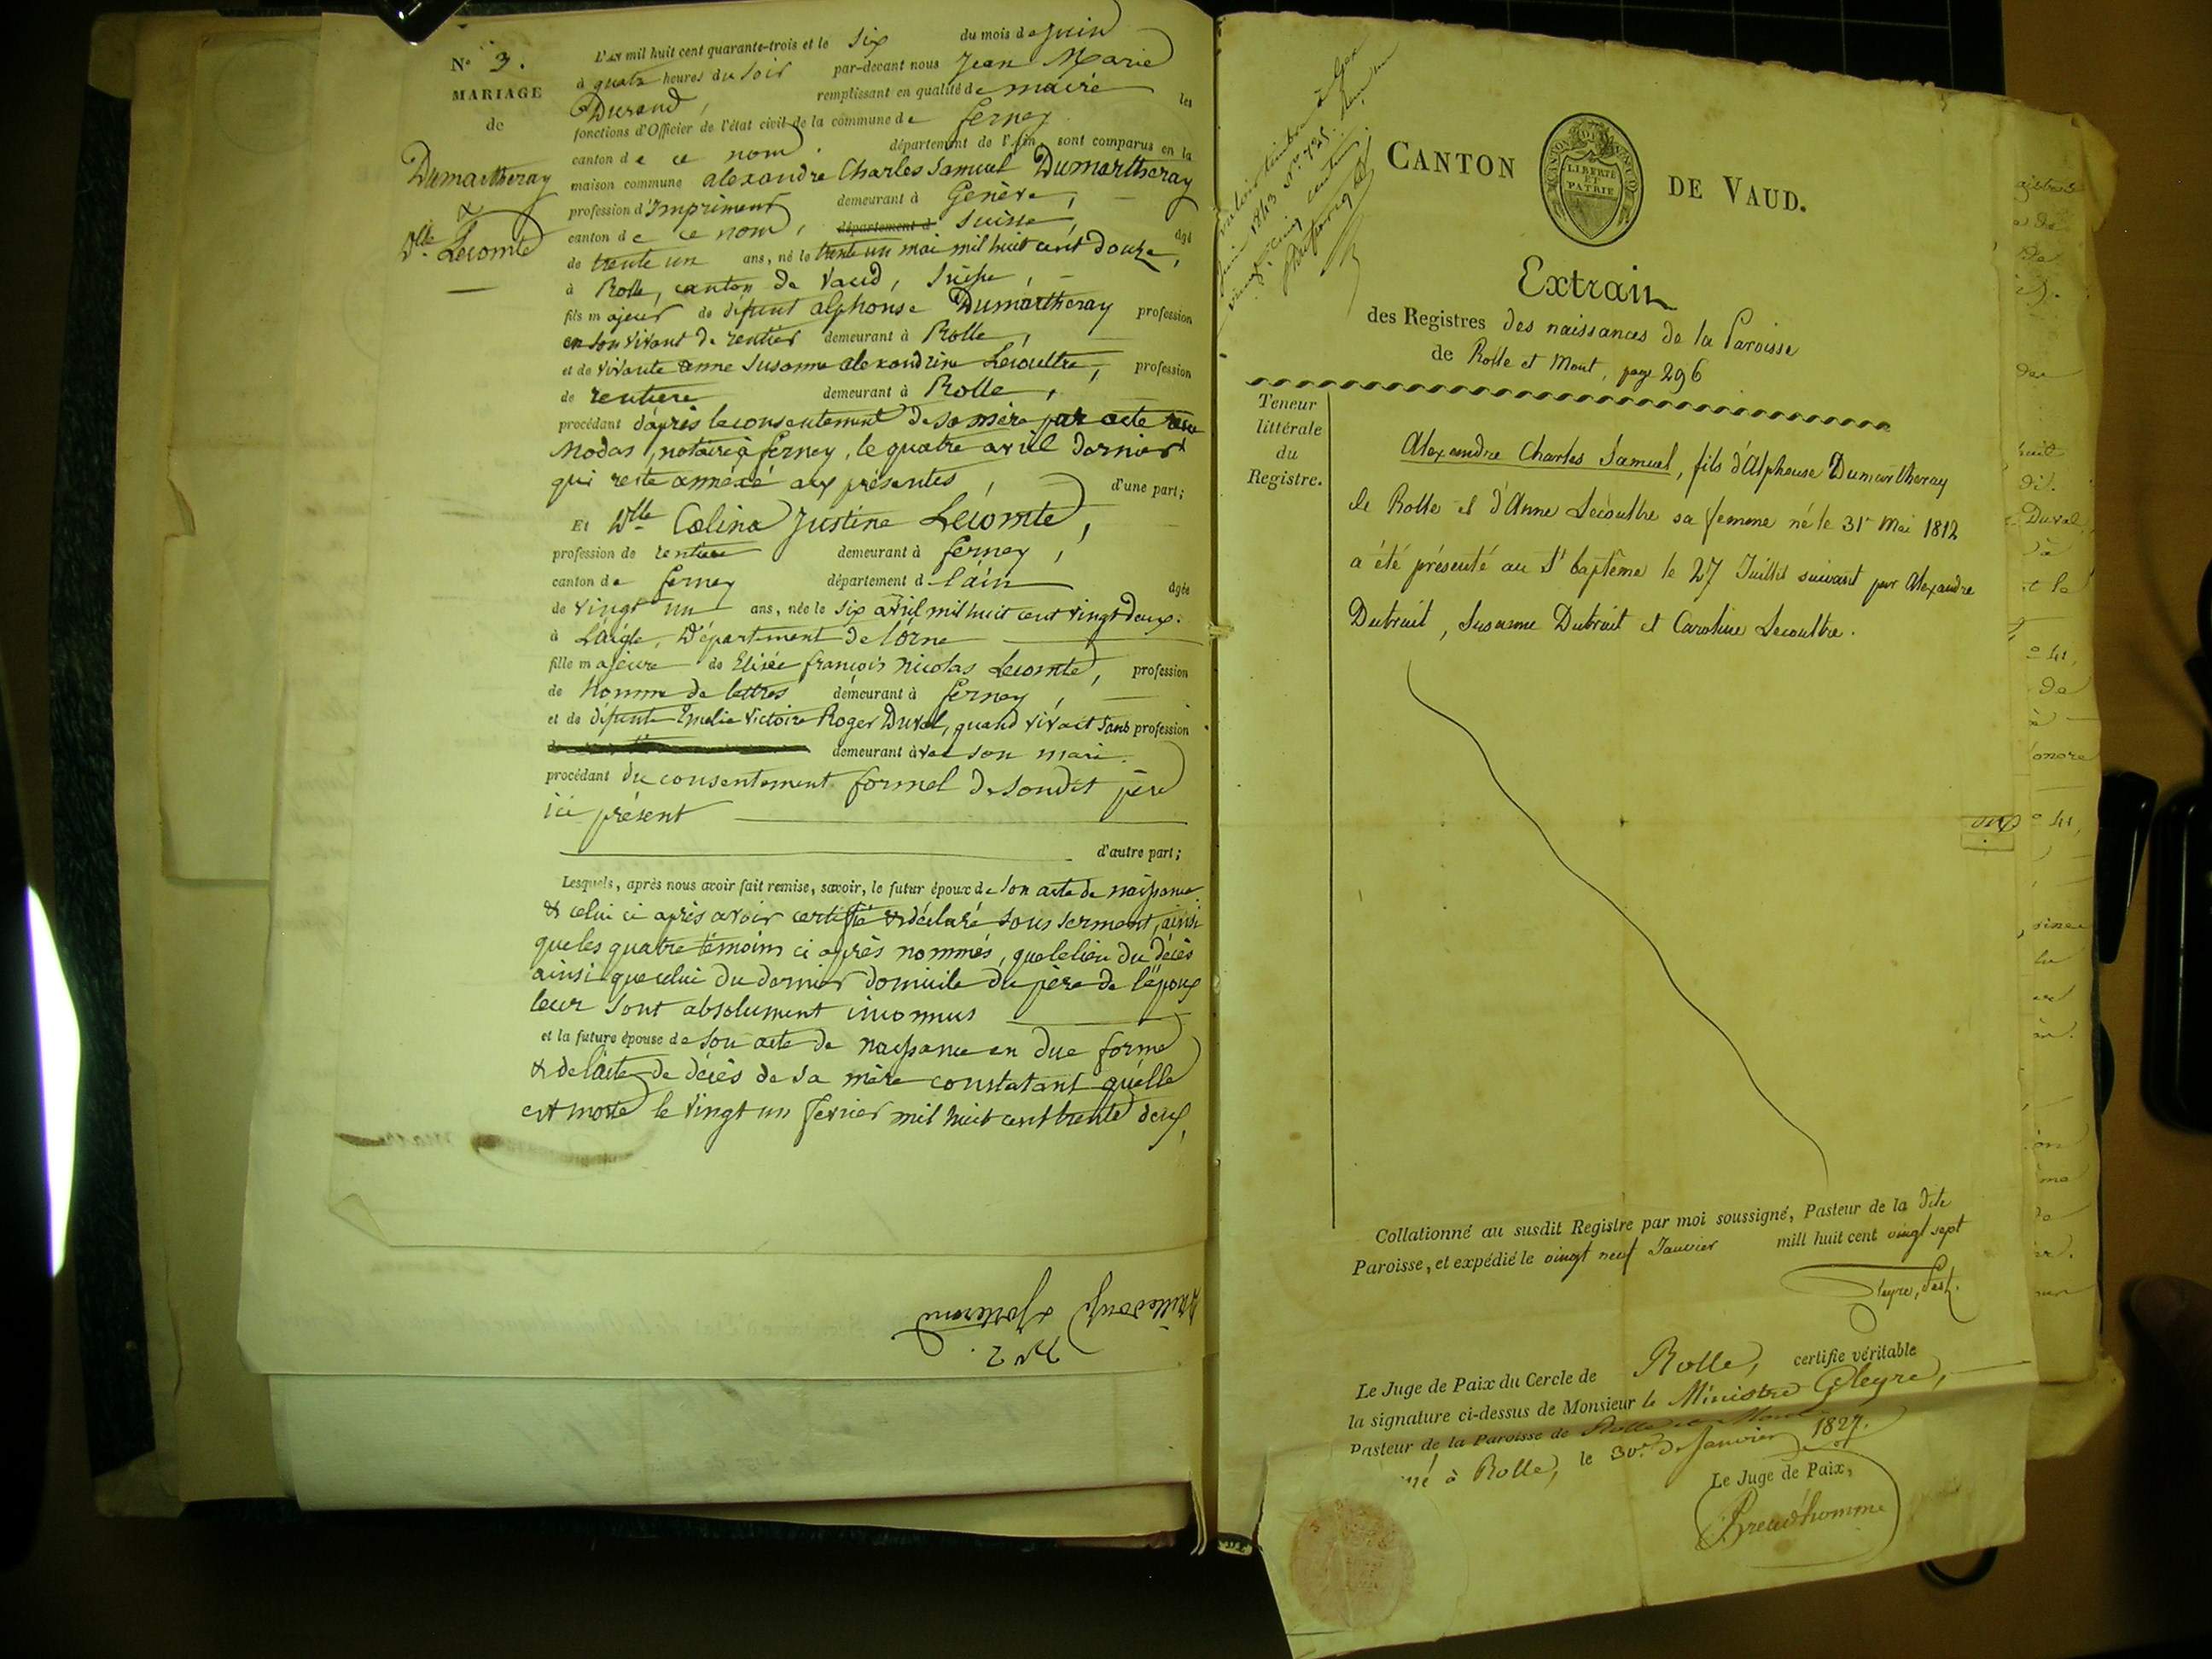 N° 3.
MARIAGE
de
Dumartheray
&
Dlle Lecomte
L'an mil huit cent quarante-trois et le six du mois de juin
à quatre heures du soir par-devant nous Jean Marie
Durand, remplissant en qualité de maire les
fonctions d'Officier de l'état civil de la commune de ferney
canton de ce nom. département de l'Ain, sont comparus en la
maison commune alexandre Charles Samuel Dumartheray
profession d'Imprimeur demeurant à Genève,
canton de ce nom, département d Suisse, âgé
de trente un ans, né le trente un mai mil huit cent douze,
à Rolle, canton de Vaud, Suisse,
fils majeur de défunt alphonse Dumartheray profession
en son vivant de rentier demeurant à Rolle,
et de vivante anne Susanne alexandrine Lecoultre, profession
de rentière demeurant à Rolle,
procédant d'après le consentement de sa mère par acte reçu
Modas, notaire à ferney, le quatre avril dernier
qui reste annexé aux présentes, d'une part;
Et Dlle Celina Justine Lecomte,
profession de rentière demeurant à ferney,
canton de ferney département d l'ain âgée
de vingt un ans, née le six avril mil huit cent vingt deux.
à L'aigle, Département de l'orne
fille majeure de Elisée françois Nicolas Lecomte, profession
de Homme de lettres demeurant à ferney,
et de défunte Emelie Victoire Roger Duval, quand vivait sans profession
demeurant avec son mari.
procédant du consentement formel de son dit père
ici présent
d'autre part;
Lesquels, après nous avoir fait remise, savoir, le futur époux de son acte de naissance
& celui ci après avoir certifié & déclaré sous serment, ainsi
que les quatre témoins ci après nommés, que le lieu du décès
ainsi que celui du dernier domicile du père de l'époux
leur sont absolument inconnus
et la future épouse de son acte de naissance en due forme
& de l'acte de décès de sa mère constatant qu'elle
est morte le vingt un fevrier mil huit cent trente deux,
N° 2.
CANTON DE VAUD.
CANTON DE VAUD
LIBERTÉ
ET
PATRIE
Extrait
des Registres des naissances de la Paroisse
de Rolle et Mont, page 296
Teneur
littérale
du
Registre.
Alexandre Charles Samuel, fils d'Alphonse Dumartheray
de Rolle et d'Anne Lecoultre sa femme né le 31r Mai 1812
a été présenté au St baptême le 27 Juillet suivant par Alexandre
Dutruit, Susanne Dutruit et Caroline Lecoultre.
Collationné au susdit Registre par moi soussigné, Pasteur de la dite
Paroisse, et expédié le vingt neuf Janvier mill huit cent vingt sept
Gleyre, Past.
Le Juge de Paix du Cercle de Rolle, certifie véritable
la signature ci-dessus de Monsieur le Ministre Gleyre,
Pasteur de la Paroisse de Rolle et Mont
à Rolle, le 30e de Janvier 1827.
Le Juge de Paix,
Preud'homme